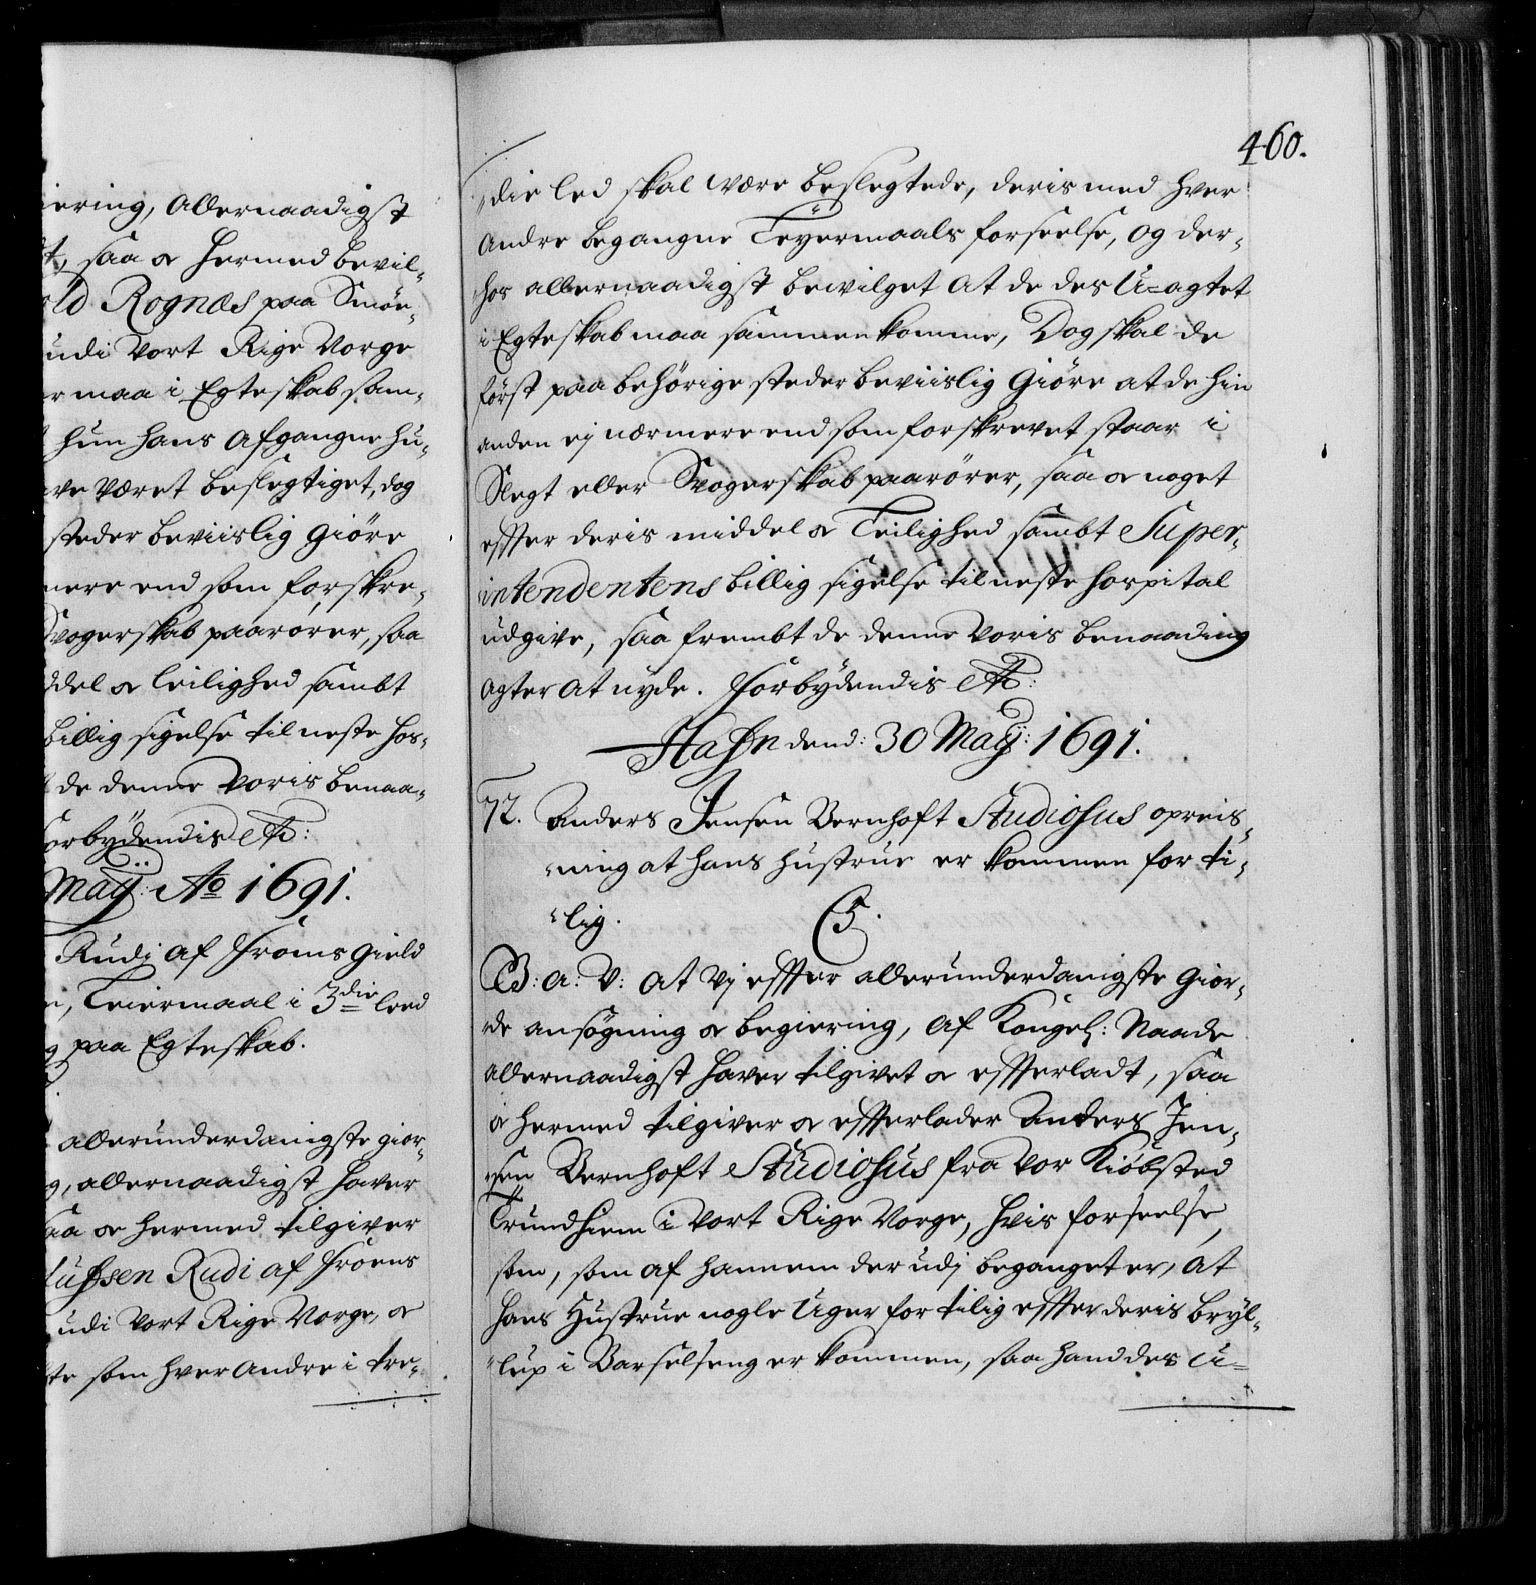 iering, Allernaadigst
t, saa oc hermed bevil-
ld Rognæs paa Smör-
udi Vort Rige Norge
r maa i Egteskab sam-
hun hans afgangne hu-
ve været beslegtiget, dog
steder beviislig giöre
mere end som forskre-
Svogerskab paarörer, saa
ddel oc leilighed sambt
billig sigelse til neste hos-
de denne Voris benaa-
orbydendis etc:
Maij: Ao 1691.
Rudi af Froens gield
i, Leiermaal i 3die leed
g paa Egteskab.
allerunderdanigste gior-
g, allernaadigst haver
saa oc hermed tilgiver
lufsen Rudi af Froens
udi Vort Rige Norge, oc
te som hver andre i tre-
460.
die led skal være beslegtede, deris med hver
andre begangne Leyermaals forseelse, og der-
hos allernaadigst bevilget at de des U-agtet
i Egteskab maa sammenkomme, Dog skal de
först paa behörige steder beviislig Giöre at de hin
anden ej nærmere end som forskrevet staar i
Slegt eller Svogerskab paarörer, saa oc noget
effter deris middel oc Leilighed sambt Super-
intendentens billig sigelse til neste hospital
udgive, saa frembt de denne Voris benaading
agter at nyde. Forbydendis etc:
Hafn dend: 30 Maij: 1691.
72. Anders Jensen Bernhoft Studiosus opreis-
ning at hans hustrue er kommen for ti-
lig. C5.
G: a: V: at Vj effter allerunderdanigste gior-
de ansögning oc begiering, af Kongel: Naade
allernaadigst haver tilgivet oc effterladt, saa
oc hermed tilgiver oc effterlader Anders Jen-
sen Bernhoft Studiosus fra vor Kiöbsted
Trundhiem i vort Rige Norge, hvis forseelse,
som, som af hannem der udj beganget er, at
hans Hustrue nogle Uger for tilig effter deris bryl-
lup i Barselseng er kommen, saa hand des U-